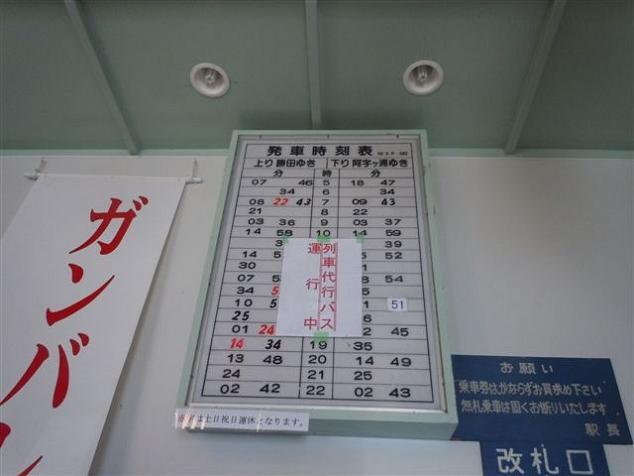 発車時刻表
上り勝田ゆき 下り阿字ヶ浦ゆき
分 時 分
07 46 5 18 47
34 6 34
08 22 43 7 09 43
21 8 22
03 36 9 03 37
14 58 10 14 59
39
14 52
30
07 54
34
10 51
25
01 24 45
14 34 19 35
13 48 20 14 49
24 21 25
02 42 22 02 43
列車代行バス
運行中
は土日祝日運休となります。
ガンバレ
お願い
乗車券はかならずお買求め下さい
無札乗車は固くお断りいたします
駅長
改札口